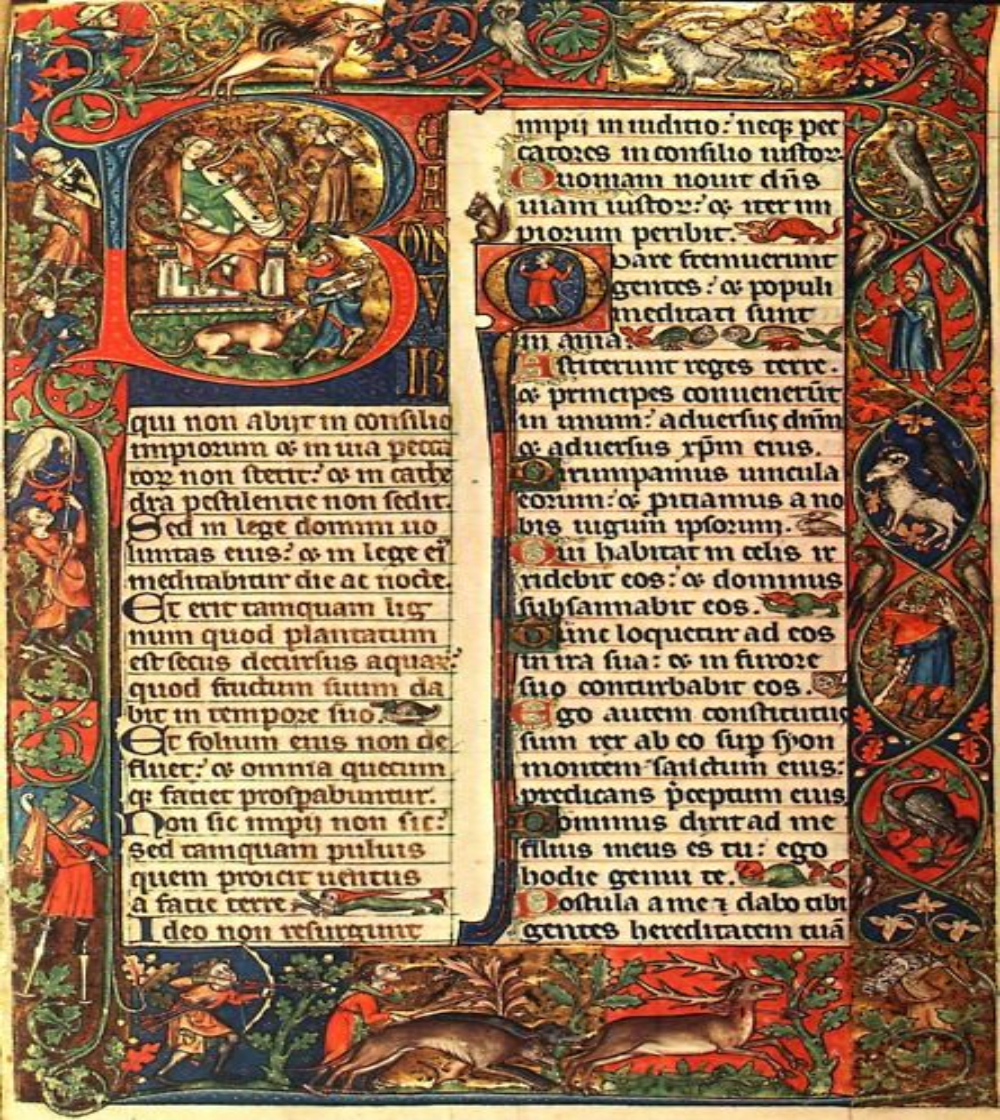 B
EATUS
VIR
qui non abijt in consilio
impiorum & in uia pecca
tor non stetit: & in cathe
dra pestilentie non sedit.
Sed in lege domini uo
luntas eius: & in lege ei
meditabitur die ac nocte.
Et erit tamquam lig
num quod plantatum
est secus decursus aquar:
quod fructum suum da
bit in tempore suo.
Et folium eius non de
fluet: & omnia quecum
q; faciet prosperabuntur.
Non sic impij non sic:
sed tamquam puluis
quem proicit uentus
a facie terre.
Ideo non resurgunt
impij in iuditio: neq; pec
catores in consilio iustor
Quoniam nouit dn̄s
uiam iustor: & iter im
piorum peribit.
Quare fremuerunt
gentes: & populi
meditati sunt
in ania.
Astiterunt reges terre.
& principes conuenerūt
in unum: aduersus dn̄m
& aduersus xp̄m eius.
Dirumpamus uincula
eorum: & piciamus a no
bis iugum ipsorum.
Qui habitat in celis ir
ridebit eos: & dominus
subsannabit eos.
Tunc loquetur ad eos
in ira sua: & in furore
suo conturbabit eos.
Ego autem constitutus
sum rex ab eo sup syon
montem sanctum eius:
predicans p̄ceptum eius
Dominus dixit ad me
filius meus es tu: ego
hodie genui te.
Postula a me ⁊ dabo tibi
gentes hereditatem tuā